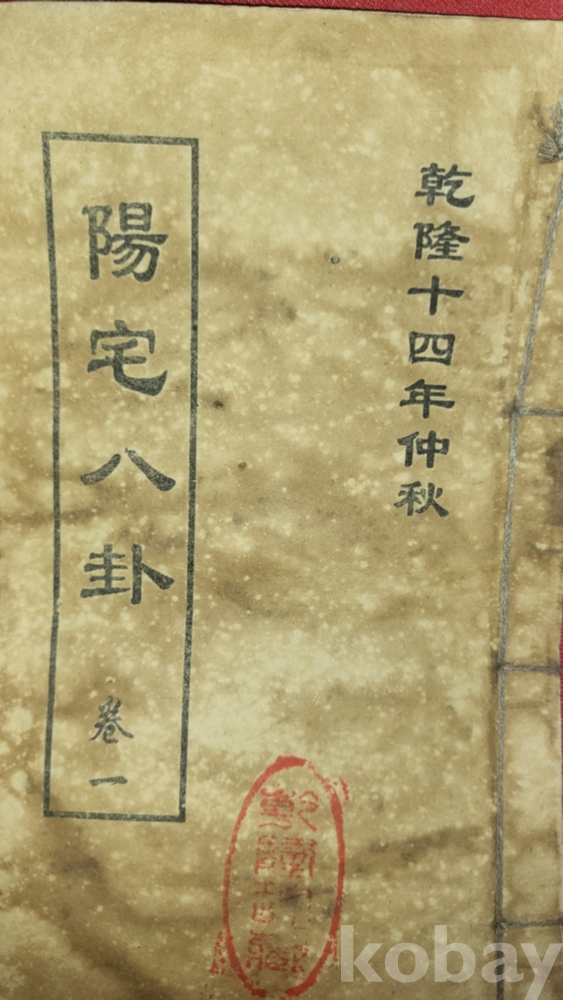 乾隆十四年仲秋
陽宅八卦
卷一
kobay